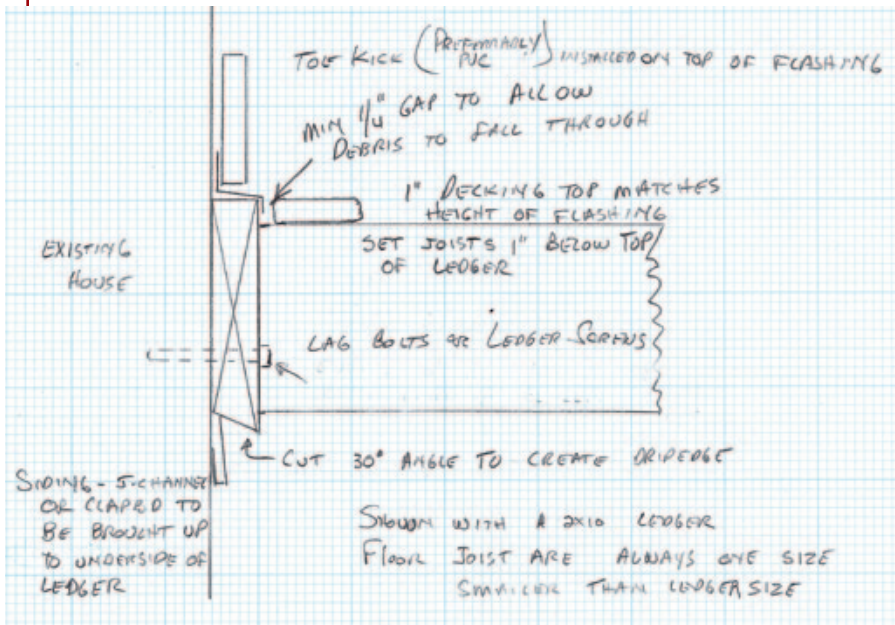 TOE KICK (PREFERRABLY PVC) INSTALLED ON TOP OF FLASHING
MIN 1/4" GAP TO ALLOW
DEBRIS TO FALL THROUGH
1" DECKING TOP MATCHES
HEIGHT OF FLASHING
EXISTING
HOUSE
SET JOISTS 1" BELOW TOP
OF LEDGER
LAG BOLTS OR LEDGER SCREWS
CUT 30° ANGLE TO CREATE DRIPEDGE
SIDING - J-CHANNEL
OR CLAPBD TO
BE BROUGHT UP
TO UNDERSIDE OF
LEDGER
SHOWN WITH A 2X10 LEDGER
FLOOR JOIST ARE ALWAYS ONE SIZE
SMALLER THAN LEDGER SIZE